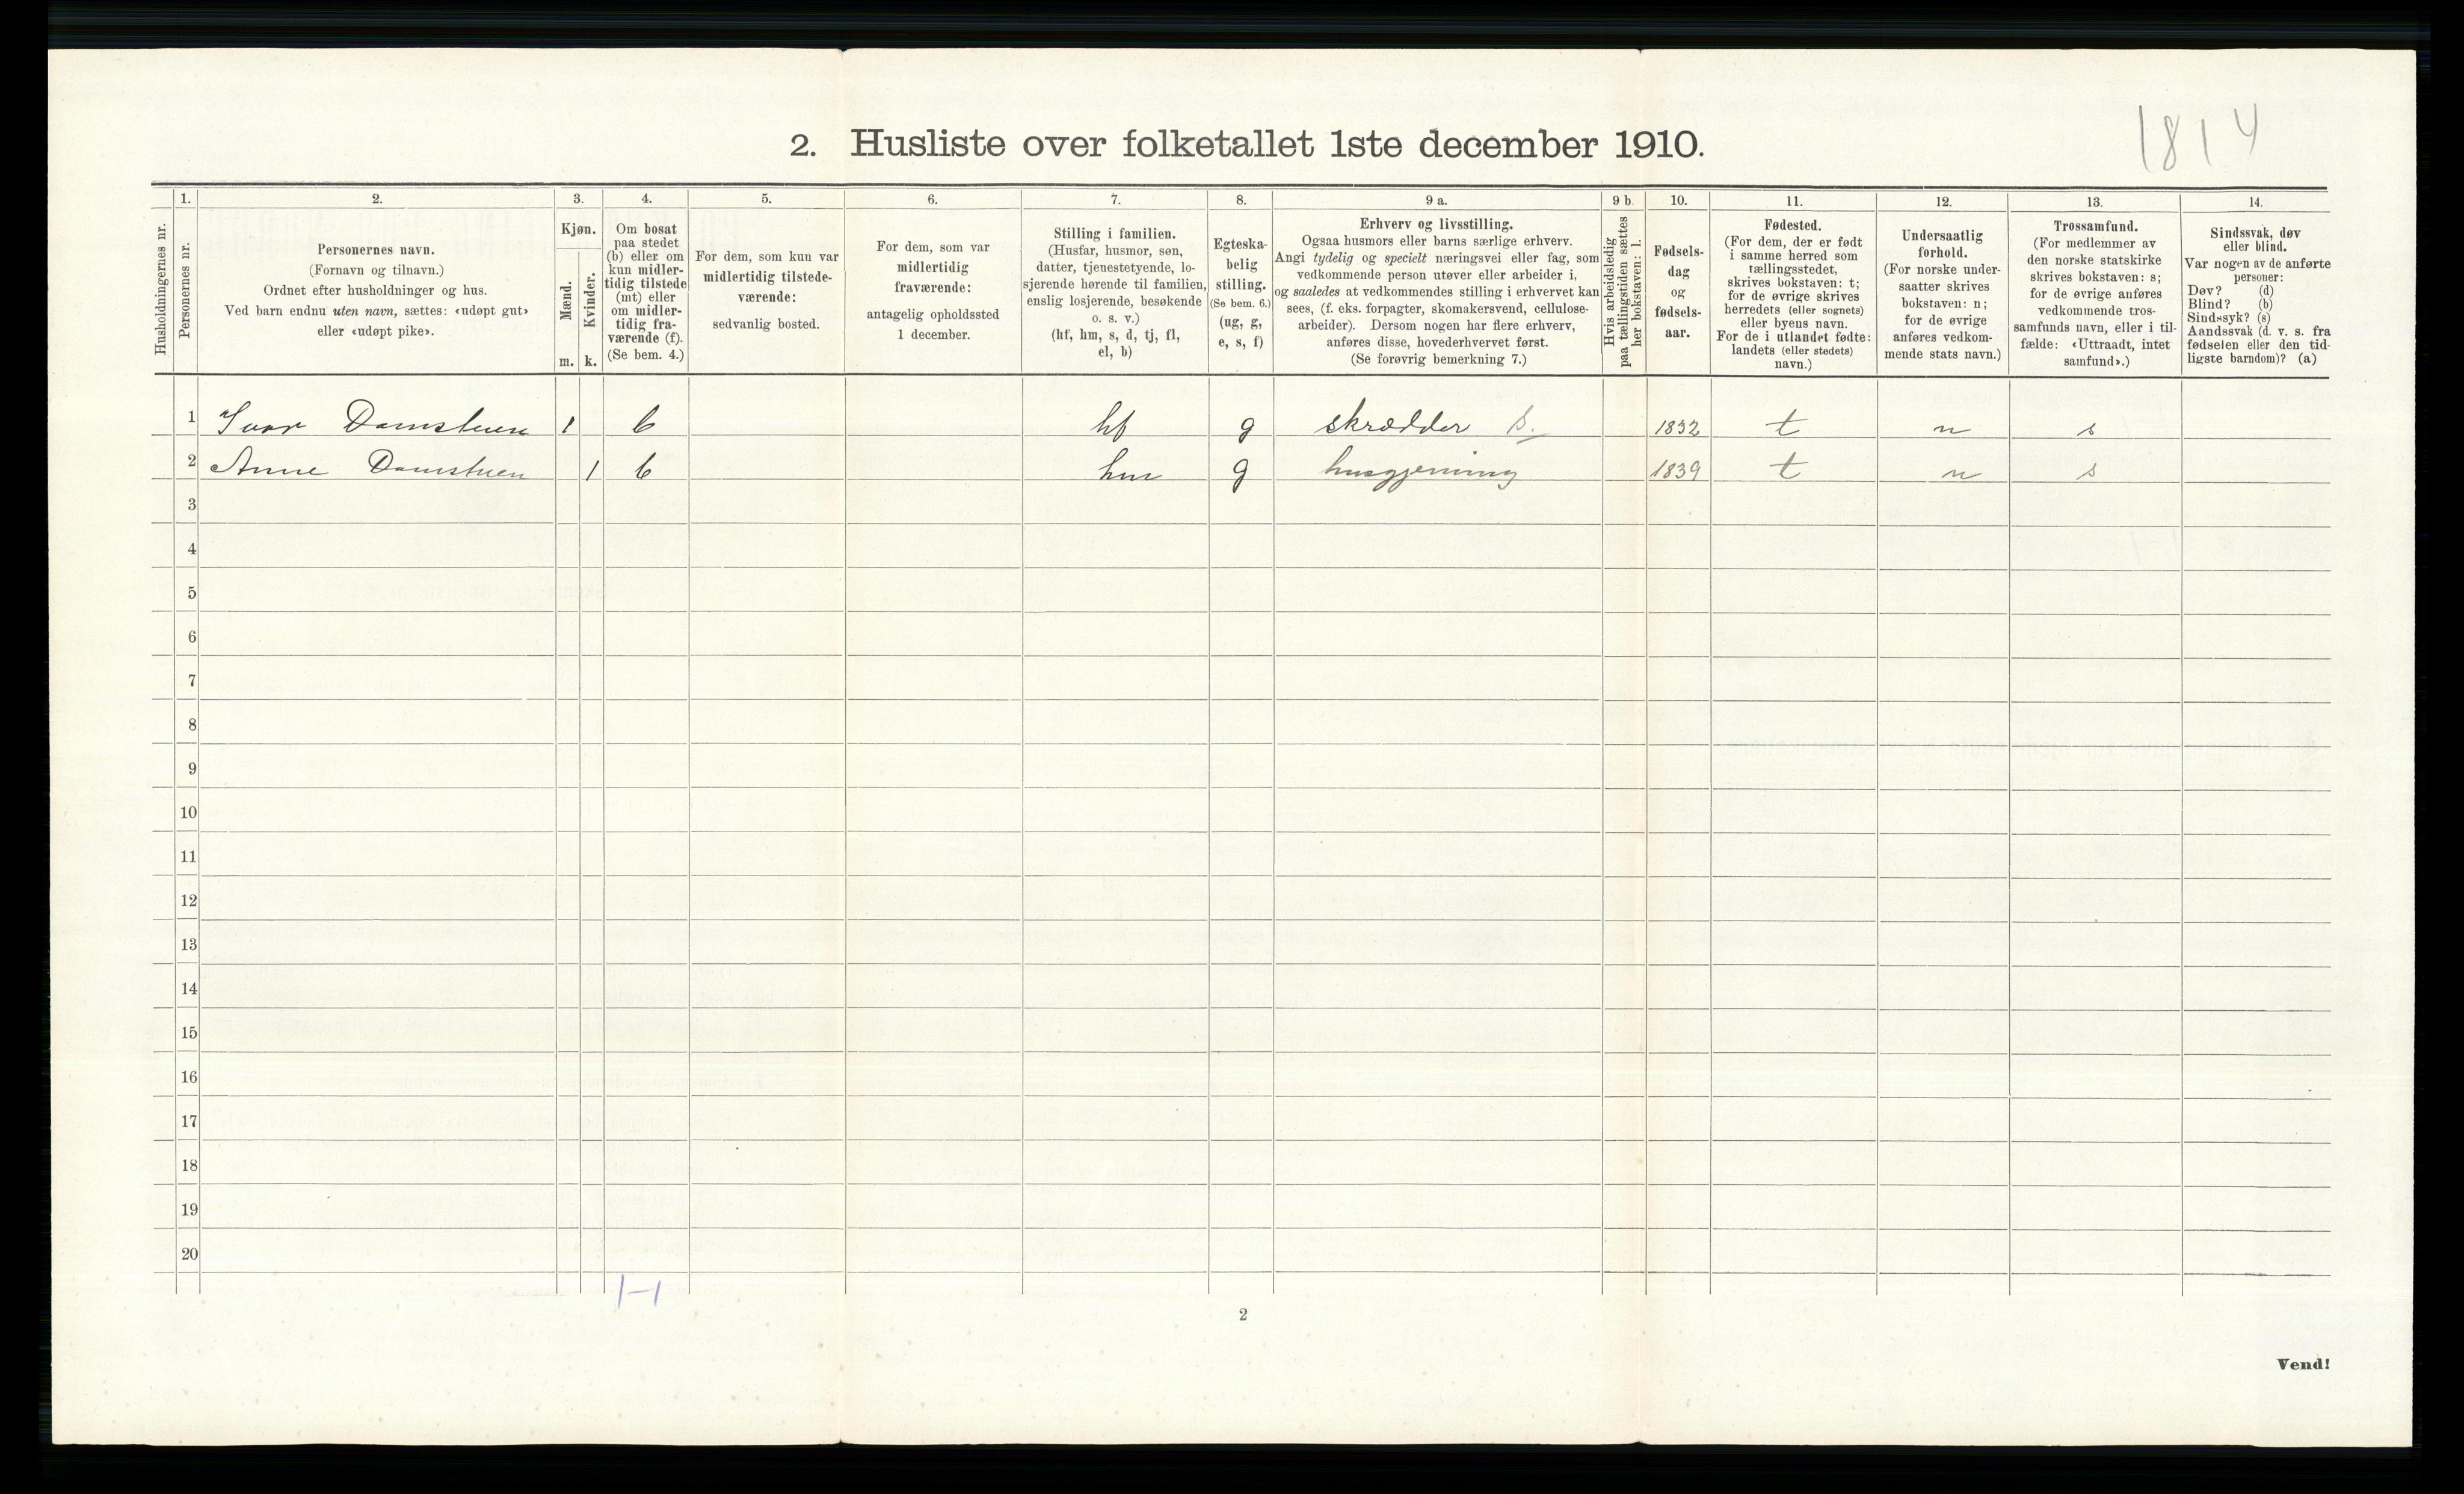 1814
2. Husliste over folketallet 1ste december 1910.
Husholdningernes nr.
1.
Personernes nr.
2.
Personernes navn.
(Fornavn og tilnavn.)
Ordnet efter husholdninger og hus.
Ved barn endnu uten navn, sættes: «udøpt gut»
eller «udøpt pike».
3.
Kjøn.
Mænd.
m.
Kvinder.
k.
4.
Om bosat
paa stedet
(b) eller om
kun midler-
tidig tilstede
(mt) eller
om midler-
tidig fra-
værende (f).
(Se bem. 4.)
5.
For dem, som kun var
midlertidig tilstede-
værende:
sedvanlig bosted.
6.
For dem, som var
midlertidig
fraværende:
antagelig opholdssted
1 december.
7.
Stilling i familien.
(Husfar, husmor, søn,
datter, tjenestetyende, lo-
sjerende hørende til familien,
enslig losjerende, besøkende
o. s. v.)
(hf, hm, s, d, tj, fl,
el, b)
8.
Egteska-
belig
stilling.
(Se bem. 6.)
(ug, g,
e, s, f)
9 a.
Erhverv og livsstilling.
Ogsaa husmors eller barns særlige erhverv.
Angi tydelig og specielt næringsvei eller fag, som
vedkommende person utøver eller arbeider i,
og saaledes at vedkommendes stilling i erhvervet kan
sees, (f. eks. forpagter, skomakersvend, cellulose-
arbeider). Dersom nogen har flere erhverv,
anføres disse, hovederhvervet først.
(Se forøvrig bemerkning 7.)
9 b.
Hvis arbeidsledig
paa tællingstiden sættes
her bokstaven: l.
10.
Fødsels-
dag
og
fødsels-
aar.
11.
Fødested.
(For dem, der er født
i samme herred som
tællingsstedet,
skrives bokstaven: t;
for de øvrige skrives
herredets (eller sognets)
eller byens navn.
For de i utlandet fødte:
landets (eller stedets)
navn.)
12.
Undersaatlig
forhold.
(For norske under-
saatter skrives
bokstaven: n;
for de øvrige
anføres vedkom-
mende stats navn.)
13.
Trossamfund.
(For medlemmer av
den norske statskirke
skrives bokstaven: s;
for de øvrige anføres
vedkommende tros-
samfunds navn, eller i til-
fælde: «Uttraadt, intet
samfund».)
14.
Sindssvak, døv
eller blind.
Var nogen av de anførte
personer:
Døv? (d)
Blind? (b)
Sindssyk? (s)
Aandssvak (d. v. s. fra
fødselen eller den tid-
ligste barndom)? (a)
1 Ivar Damstuen 1 b hf g skrædder S. 1832 t n s
2 Anne Damstuen 1 b hm g husgjerning 1839 t n s
3
4
5
6
7
8
9
10
11
12
13
14
15
16
17
18
19
20
1-1
2
Vend!